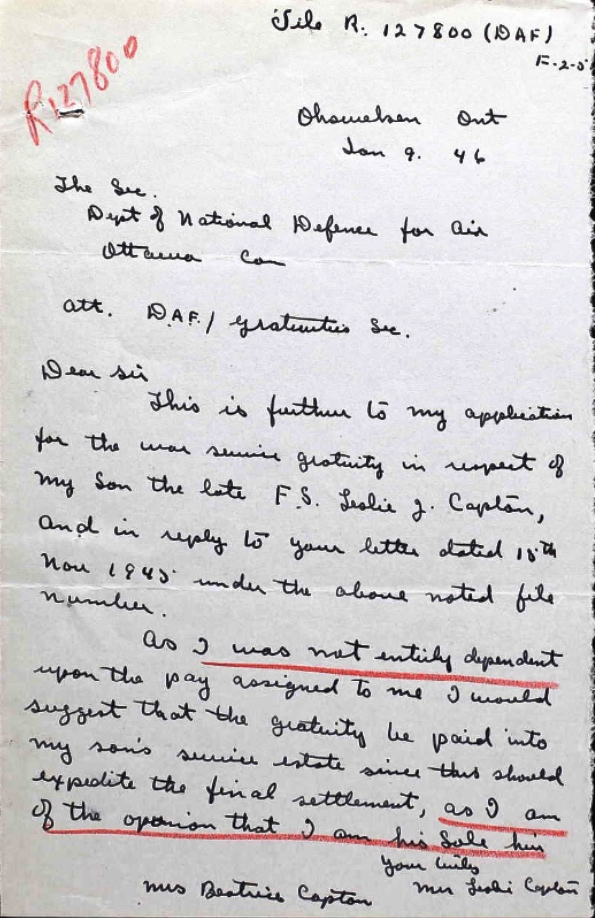 File R. 127800 (DAF)
R127800
Ohsweken Ont
Jan 9. 46
The Sec.
Dept of National Defence for Air
Ottawa Can
Att. D.A.F./ Gratuities Sec.
Dear Sir
This is further to my application
for the war service gratuity in respect of
my Son the late F.S. Leslie J. Capton,
and in reply to your letter dated 15th
Nov 1945 under the above noted file
number.
As I was not entirly dependent
upon the pay assigned to me I would
suggest that the gratuity be paid into
my son's service estate since this should
expedite the final settlement, as I am
of the opinion that I am his Sole hir
Your truly
Mrs Beatrice Capton
Mrs Leslie Capton